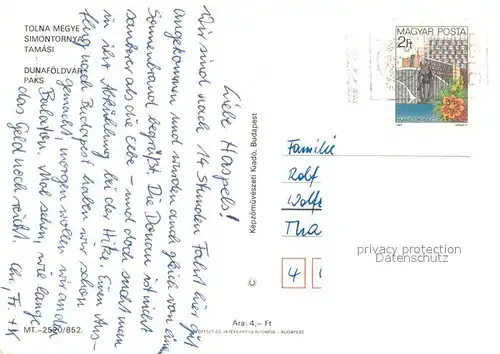 TOLNA MEGYE
SIMONTORNYA
TAMÁSI
DUNAFÖLDVÁR
PAKS
Liebe Haspels!
Wir sind nach 14 Stunden Fahrt hier gut
angekommen und wurden auch gleich von einem
Sonnenbrand begrüßt. Die Donau ist nicht
sauberer als die Elbe - und doch sucht man
in ihr Abkühlung bei der Hitze. Einen Aus-
flug nach Budapest haben wir schon
gemacht, morgen wollen wir an den
Balaton. Mal sehen, wie lange
das Geld noch reicht.
MT.-2520/852.
Képzőművészeti Kiadó, Budapest
Ára: 4,- Ft
MAGYAR POSTA
2 Ft
Familie
Rolf
Wolf
Tha
4
privacy protection
Datenschutz